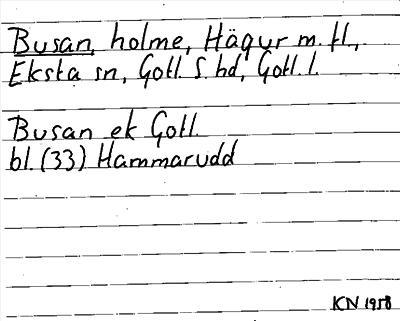 Busan, holme, Hägur m. fl.,
Eksta sn, Gotl. S. hd, Gotl. l.
Busan ek Gotl.
bl. (33) Hammarudd
KN 1958